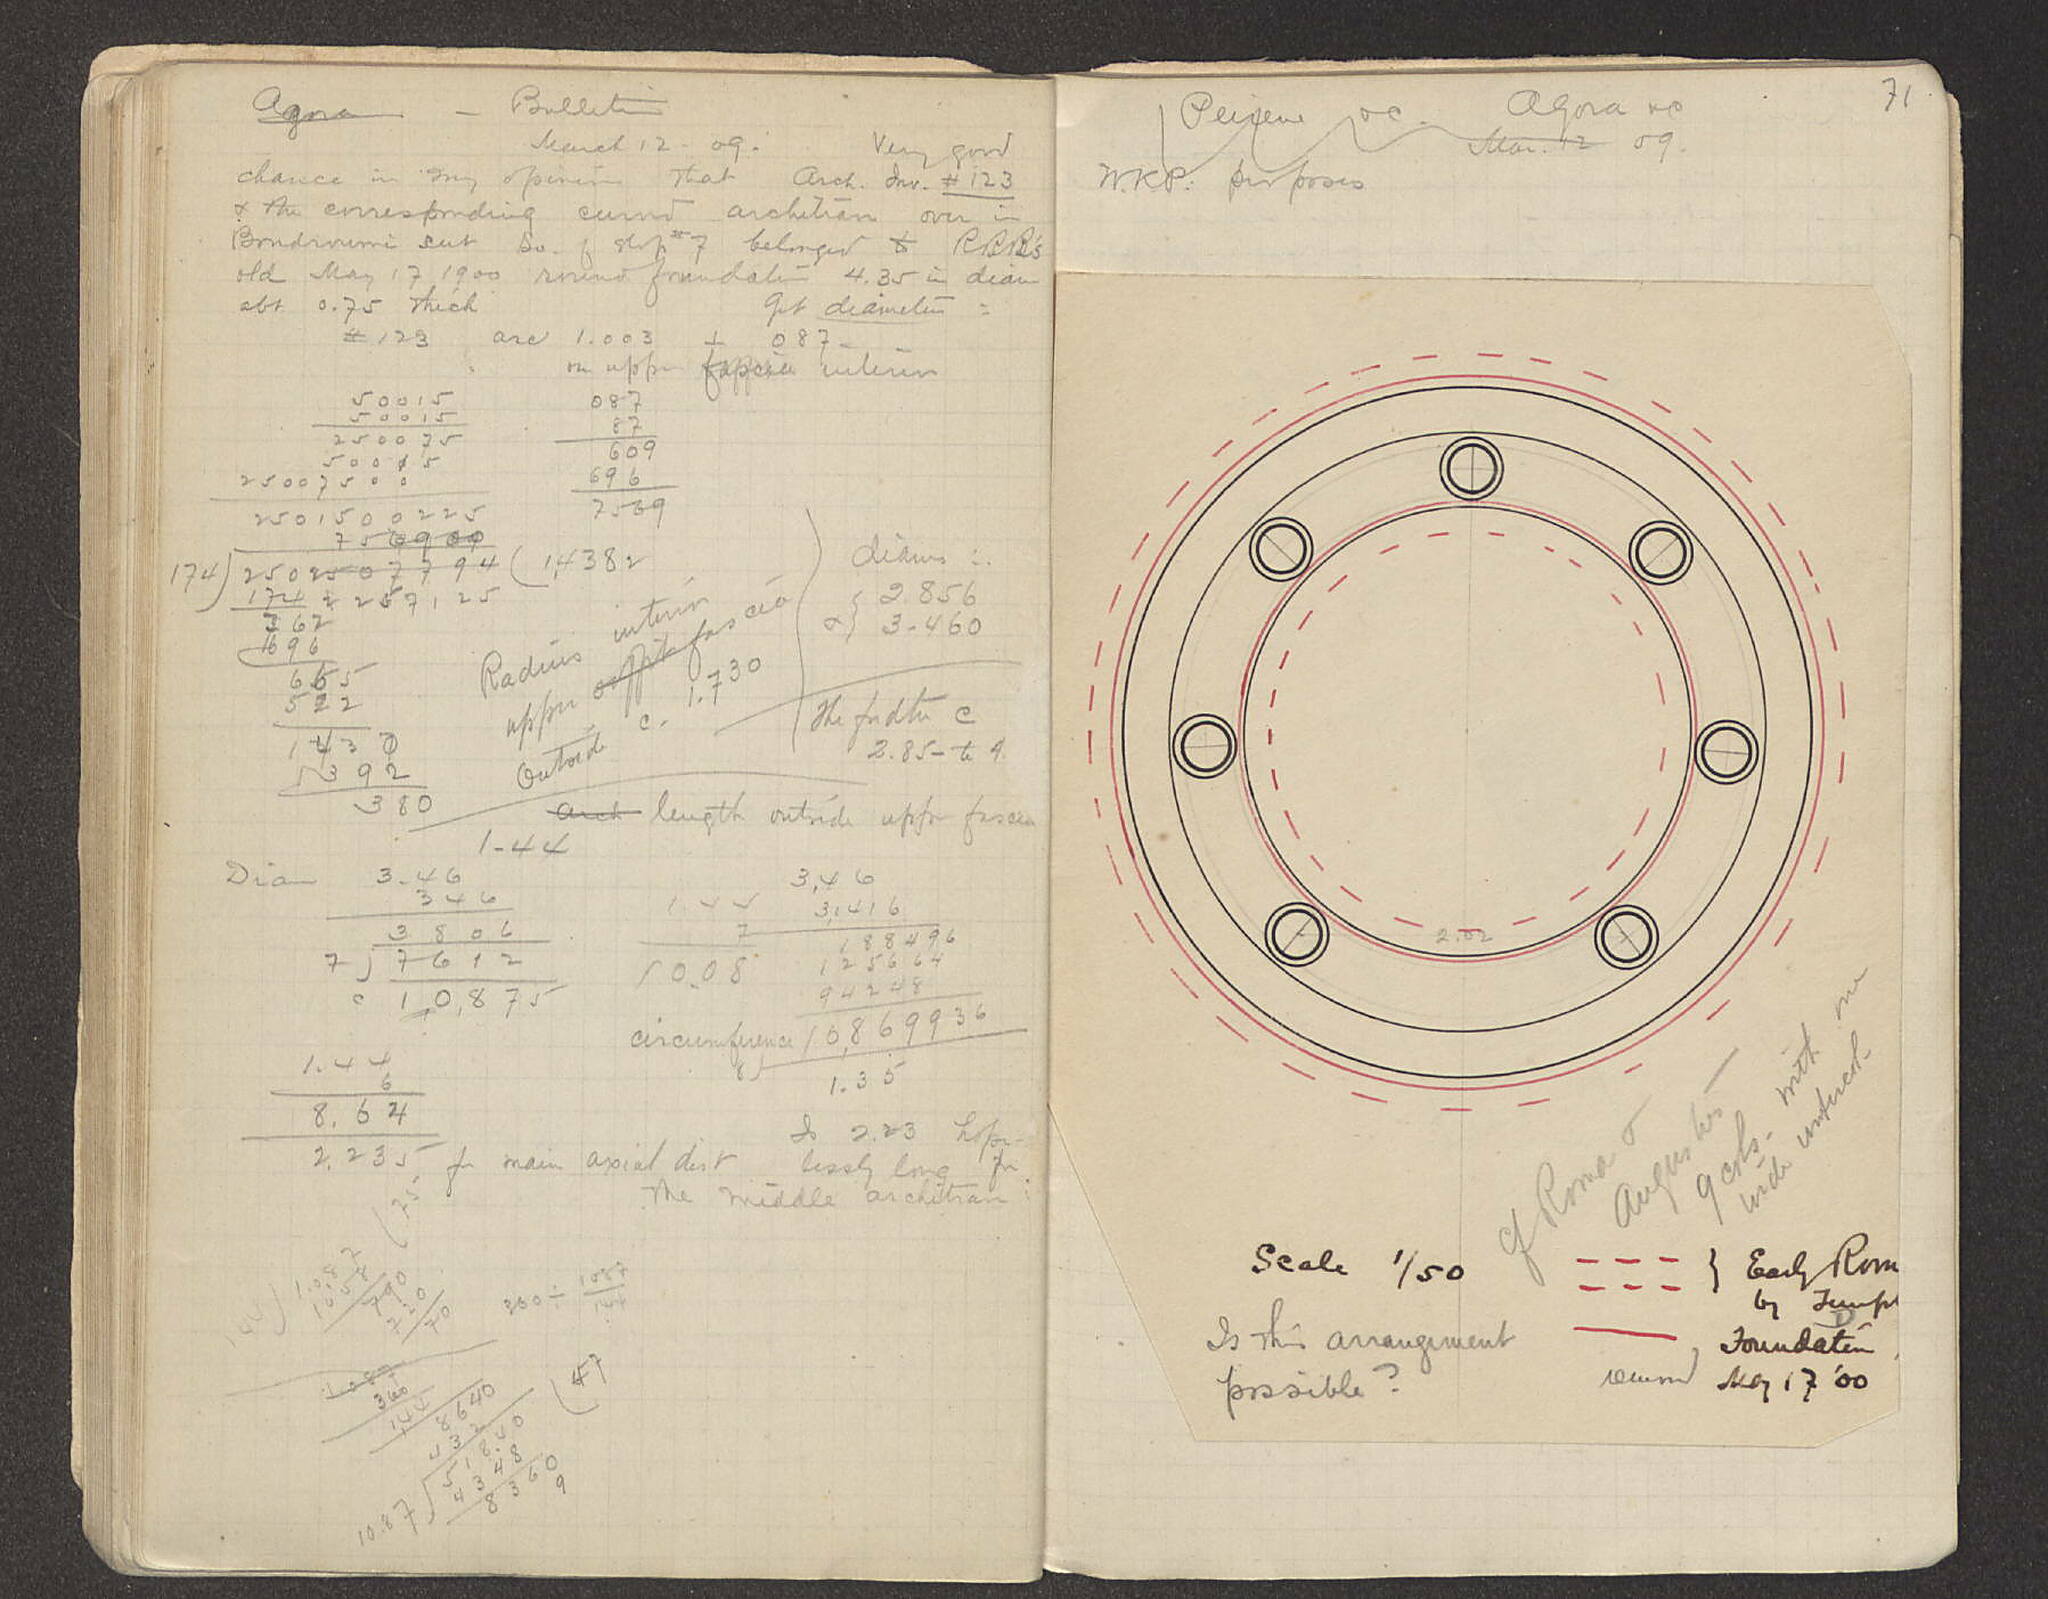 Agora - Bulletin
March 12 - 09. Very good
chance in my opinion that Arch. Inv. #123
& the corresponding curved architrave over in
Boudroumi sent So. of shop #7 belonged to
old May 17 1900 round foundation 4.35 in diam
abt 0.75 thick Get diameter =
#123 arc 1.003 + 087
on upper fascia interior
50015
50015
250075
50015
25007500
2501500225
087
87
609
696
7569
174) 2502507794 ( 1,4382
174 2257125
362
696
665
522
1430
1392
380
Radius interior
upper soffit fascia
Outside c. 1.730
diams :.
2.856
& 3.460
The c
2.85 - to 4.
arch length outside upper fascia
1.44
Diam 3.46
346
3806
7) 7612
c 10,875
1.44
7
10.08
3.46
3.1416
188496
125664
94248
circumference 10,869936
8
1.35
1.44
6
8.64
2.235 for main axial dist
Is 2.23 hope-
lessly long for
the middle architrave
360 ÷ 1087
144
360
144
8640
47
10.87
5180
4348
8360
9
71
Peirene oc. Agora oc
Mar. 12 09.
W.K.P. purposes
2.02
cf Roma &
Augustus
9 cols. with one
wide intercol.
Scale 1/50
Early Rom
by
Is this arrangement
possible?
Foundation
round May 17 '00